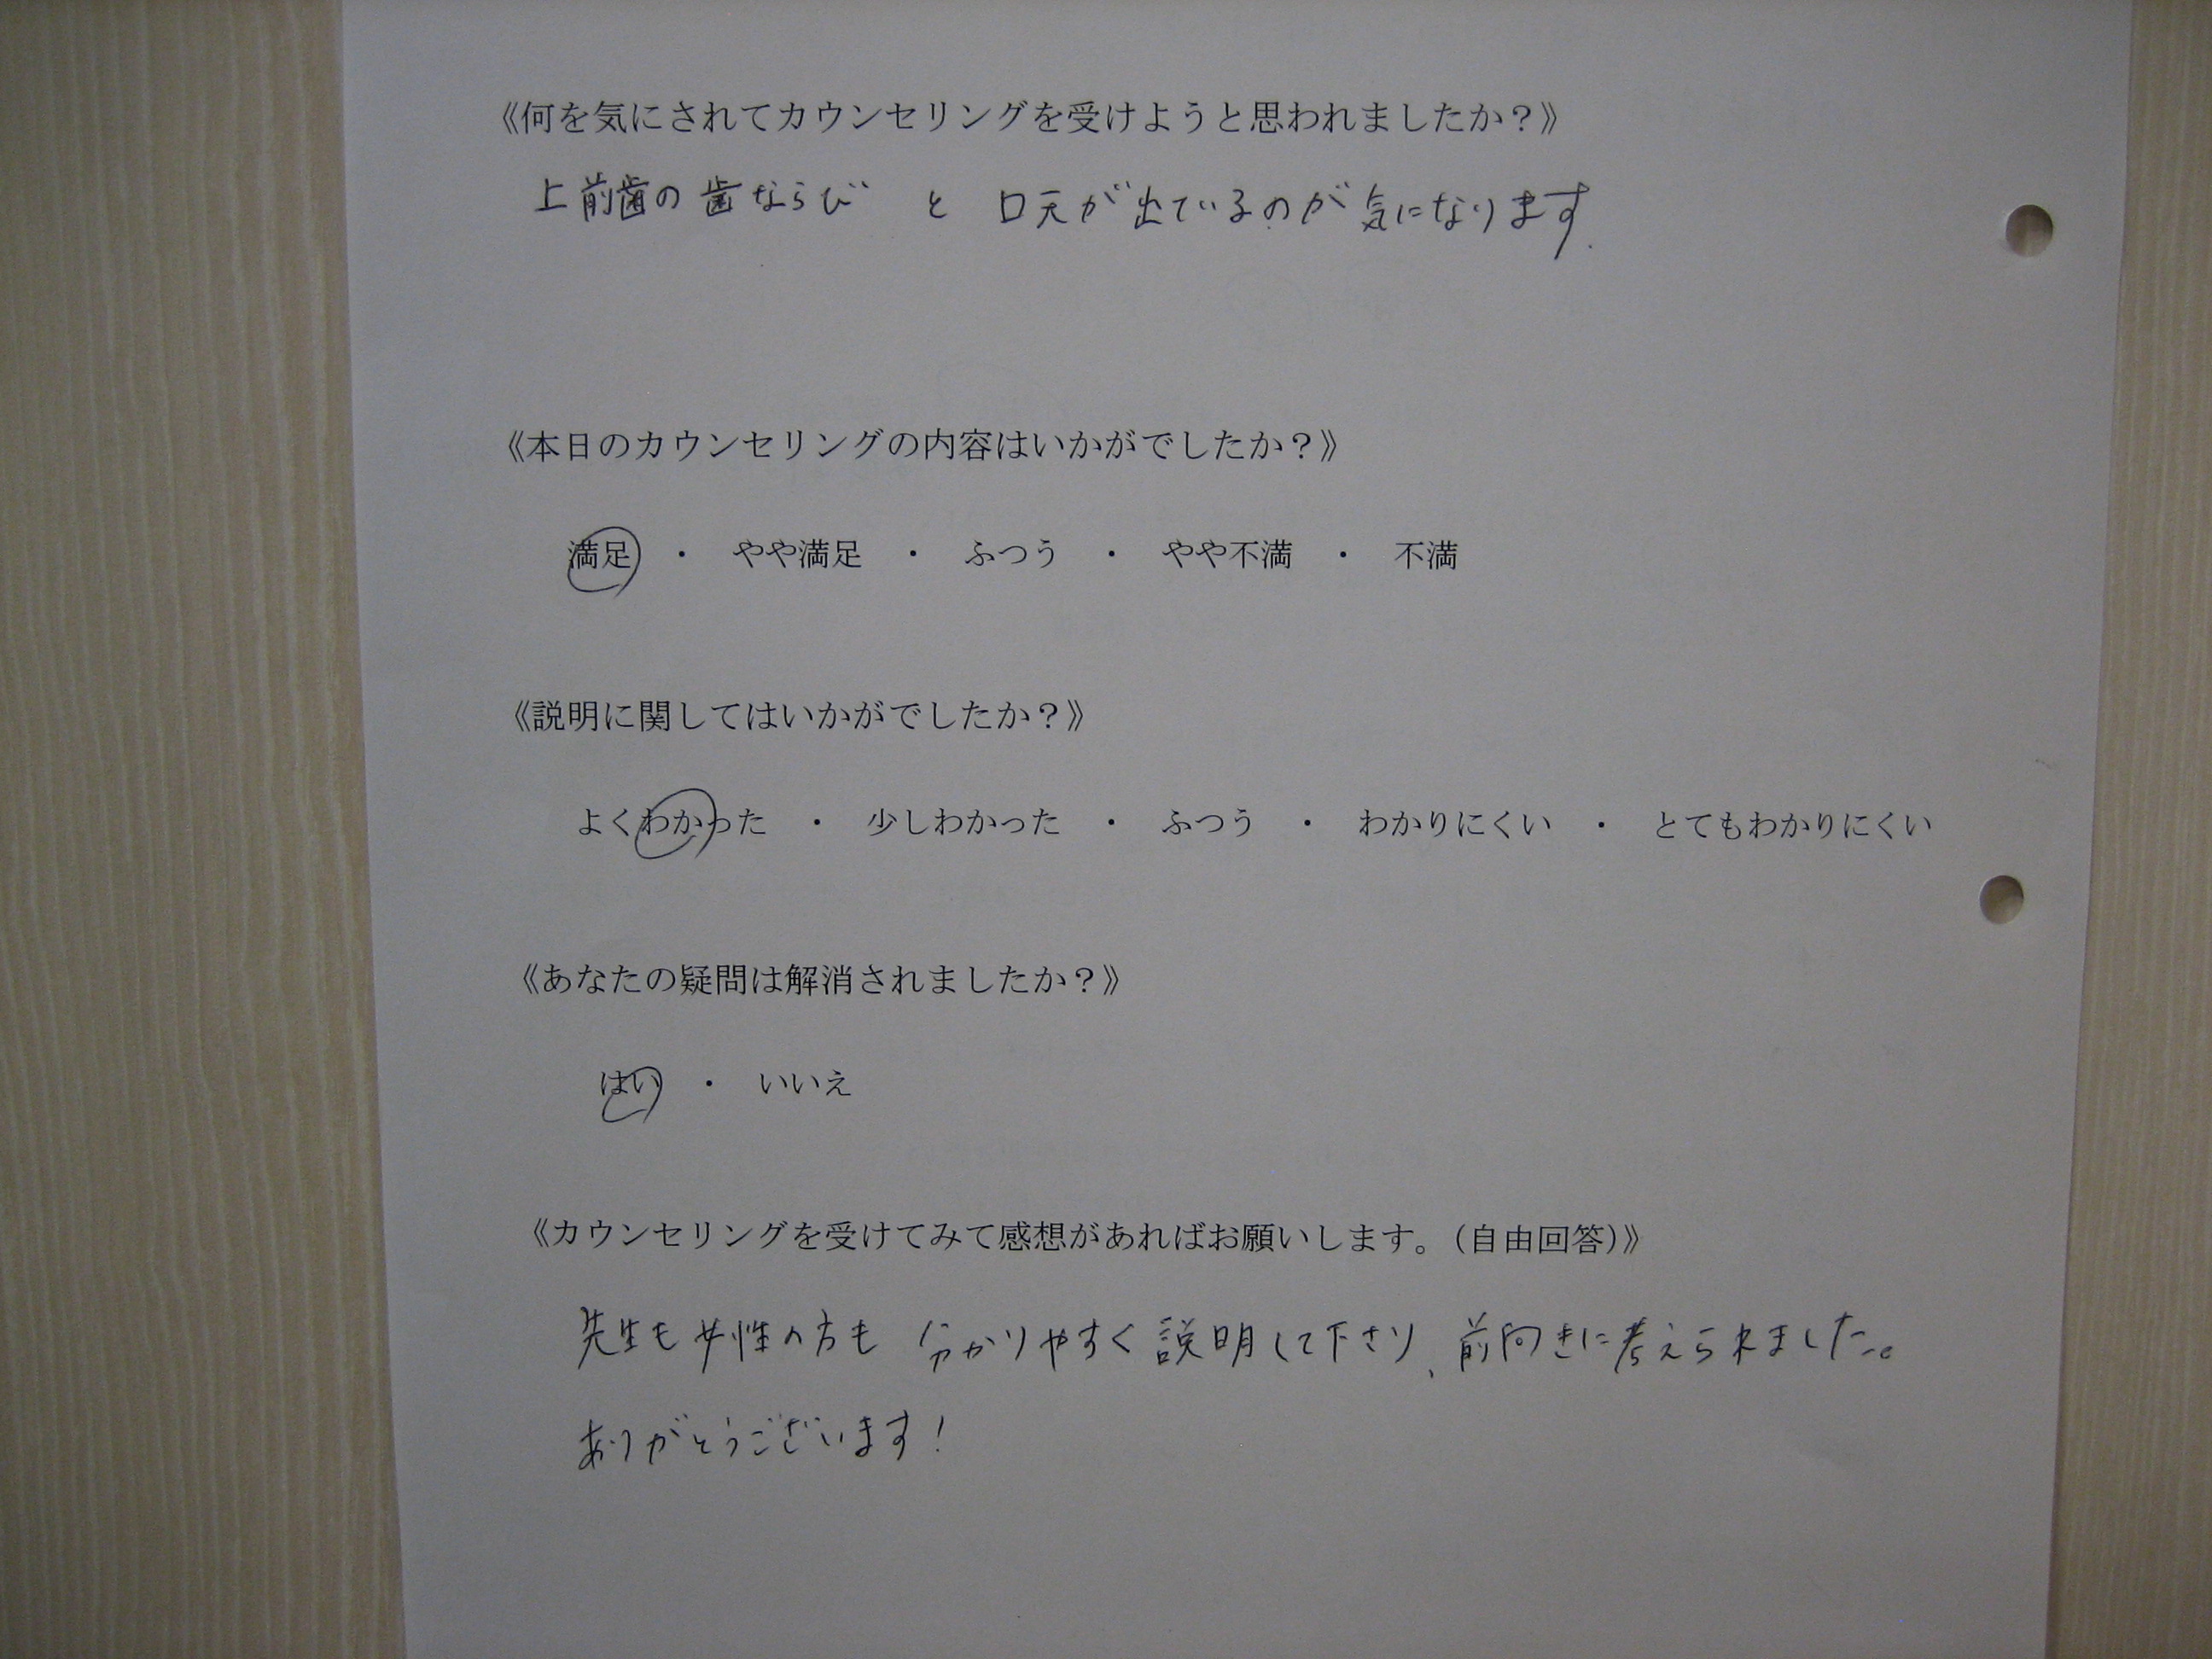 《何を気にされてカウンセリングを受けようと思われましたか？》
上前歯の歯ならび と 口元が出ているのが気になります.
《本日のカウンセリングの内容はいかがでしたか？》
満足 ・ やや満足 ・ ふつう ・ やや不満 ・ 不満
《説明に関してはいかがでしたか？》
よくわかった ・ 少しわかった ・ ふつう ・ わかりにくい ・ とてもわかりにくい
《あなたの疑問は解消されましたか？》
はい ・ いいえ
《カウンセリングを受けてみて感想があればお願いします。（自由回答）》
先生も女性の方も 分かりやすく説明して下さり、前向きに考えられました。
ありがとうございます！